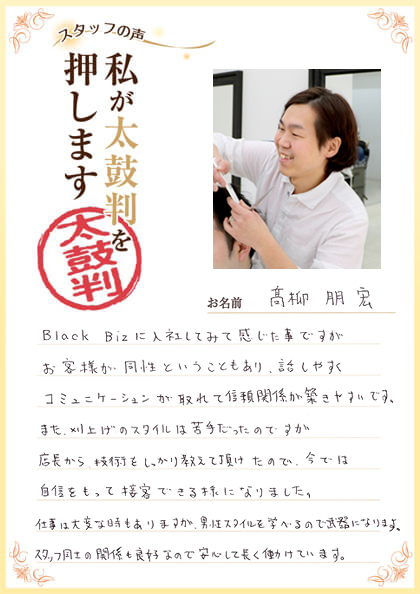 スタッフの声
私が太鼓判を
押します
太鼓判
お名前 髙柳 朋宏
Black Bizに入社してみて感じた事ですが
お客様が同性ということもあり、話しやすく
コミュニケーションが取れて信頼関係が築きやすいです。
また、刈上げのスタイルは苦手だったのですが
店長から、技術をしっかり教えて頂けたので、今では
自信をもって接客できる様になりました。
仕事は大変な時もありますが、男性スタイルを学べるので武器になります。
スタッフ同士の関係も良好なので安心して長く働けています。